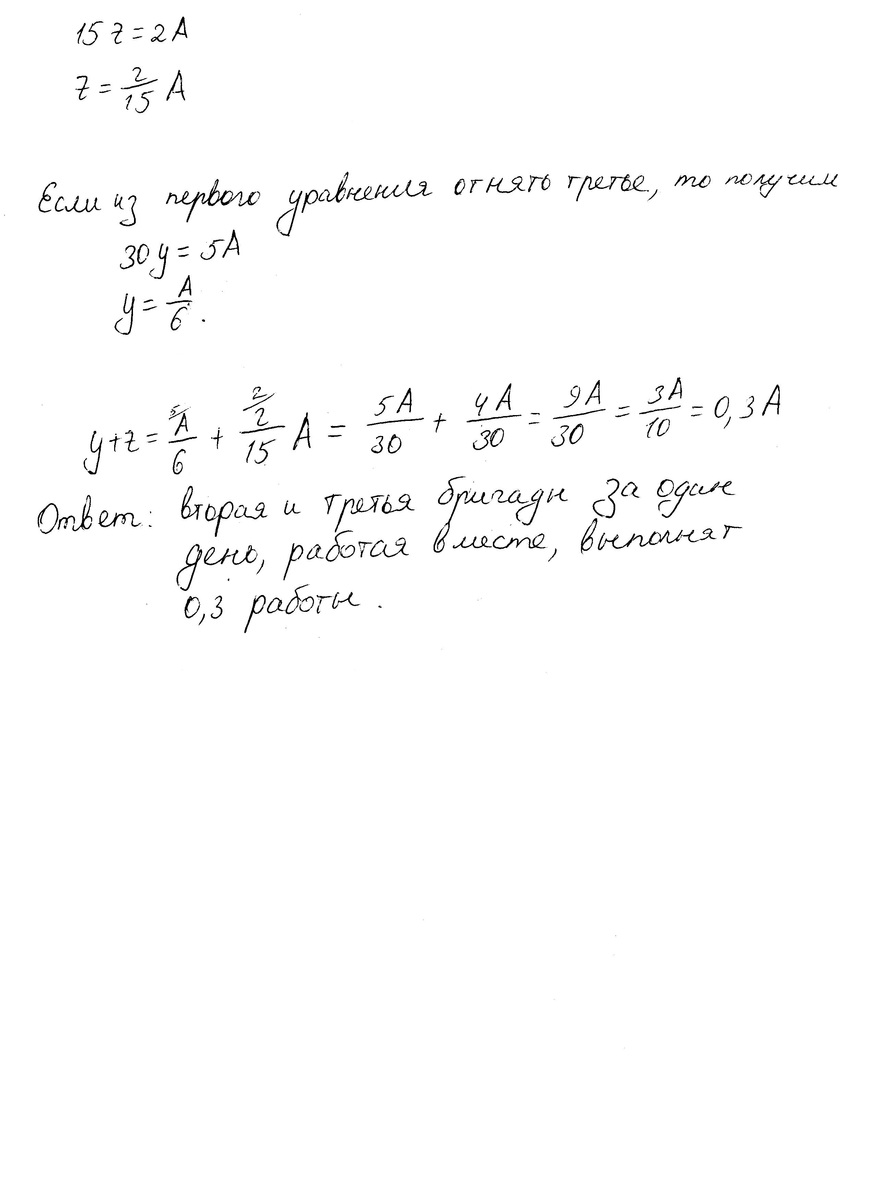 15 z = 2 A
z = 2/15 A
Если из первого уравнения отнять третье, то получим
30 y = 5 A
y = A/6 .
y + z = 5/ A/6 + 2/ 2/15 A = 5A/30 + 4A/30 = 9A/30 = 3A/10 = 0,3 A
Ответ: вторая и третья бригады за один
день, работая вместе, выполнят
0,3 работы .